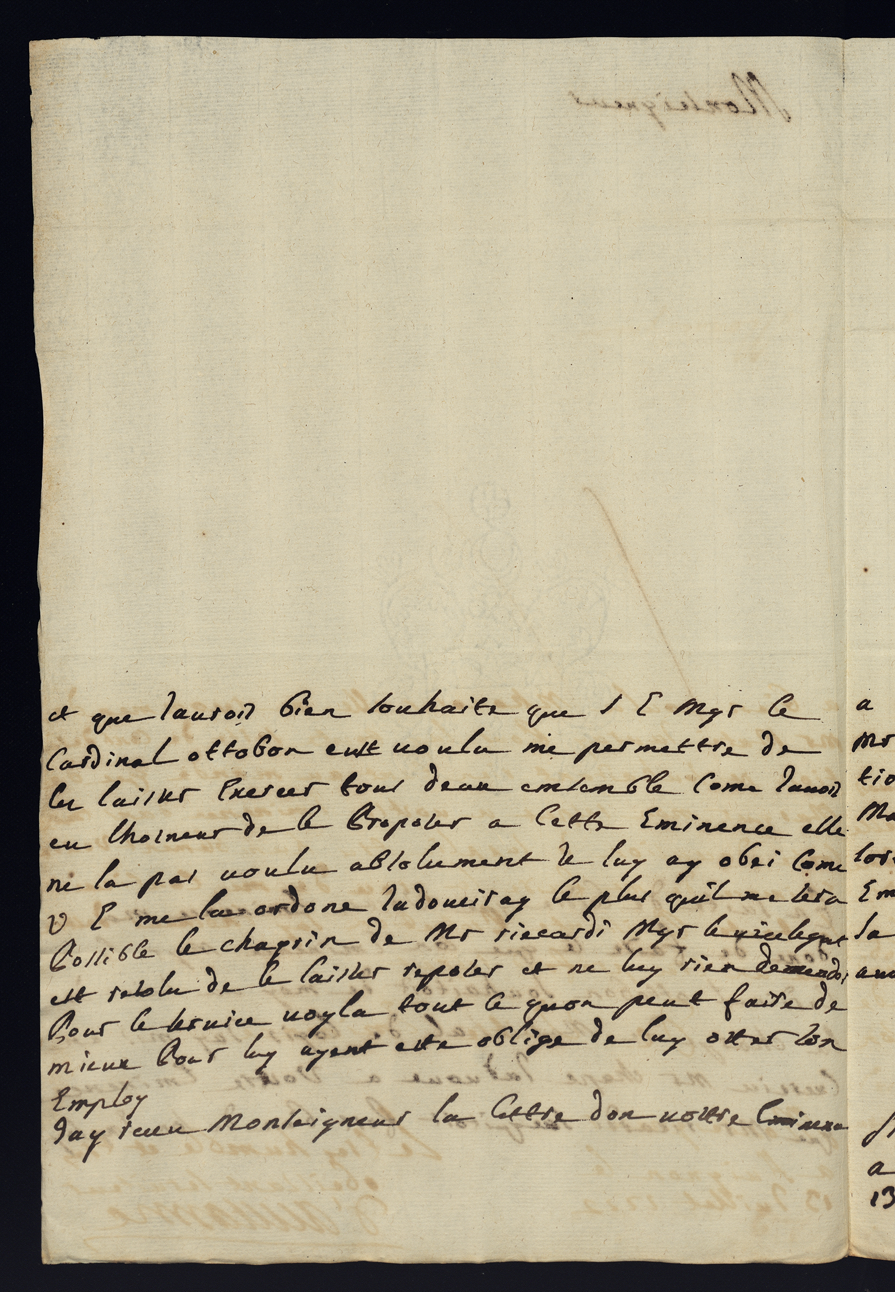 et que Jaurois bien souhaite que S E Mgr le
Cardinal ottobon eust uoulu me permettre de
les laisser Exercer tous deux ensemble Come Jauois
eu lhoineur de le Proposer a Cette Eminence elle
ne la pas uoulu absolument Je luy ay obei Come
V E me la ordone Jadouciray le plus quil me sera
Possible le chagrin de Mr riccardi Mgr le uicelegat
est resolu de le laisser reposer et ne luy rien demander
Pour le seruice uoyla tout ce quon peut faire de
mieux Pour luy ayent este oblige de luy oster son
Employ
Jay receu Monseigneur la lettre don uostre Eminence
a
Mr
tio
Ma
Em
la
a
13